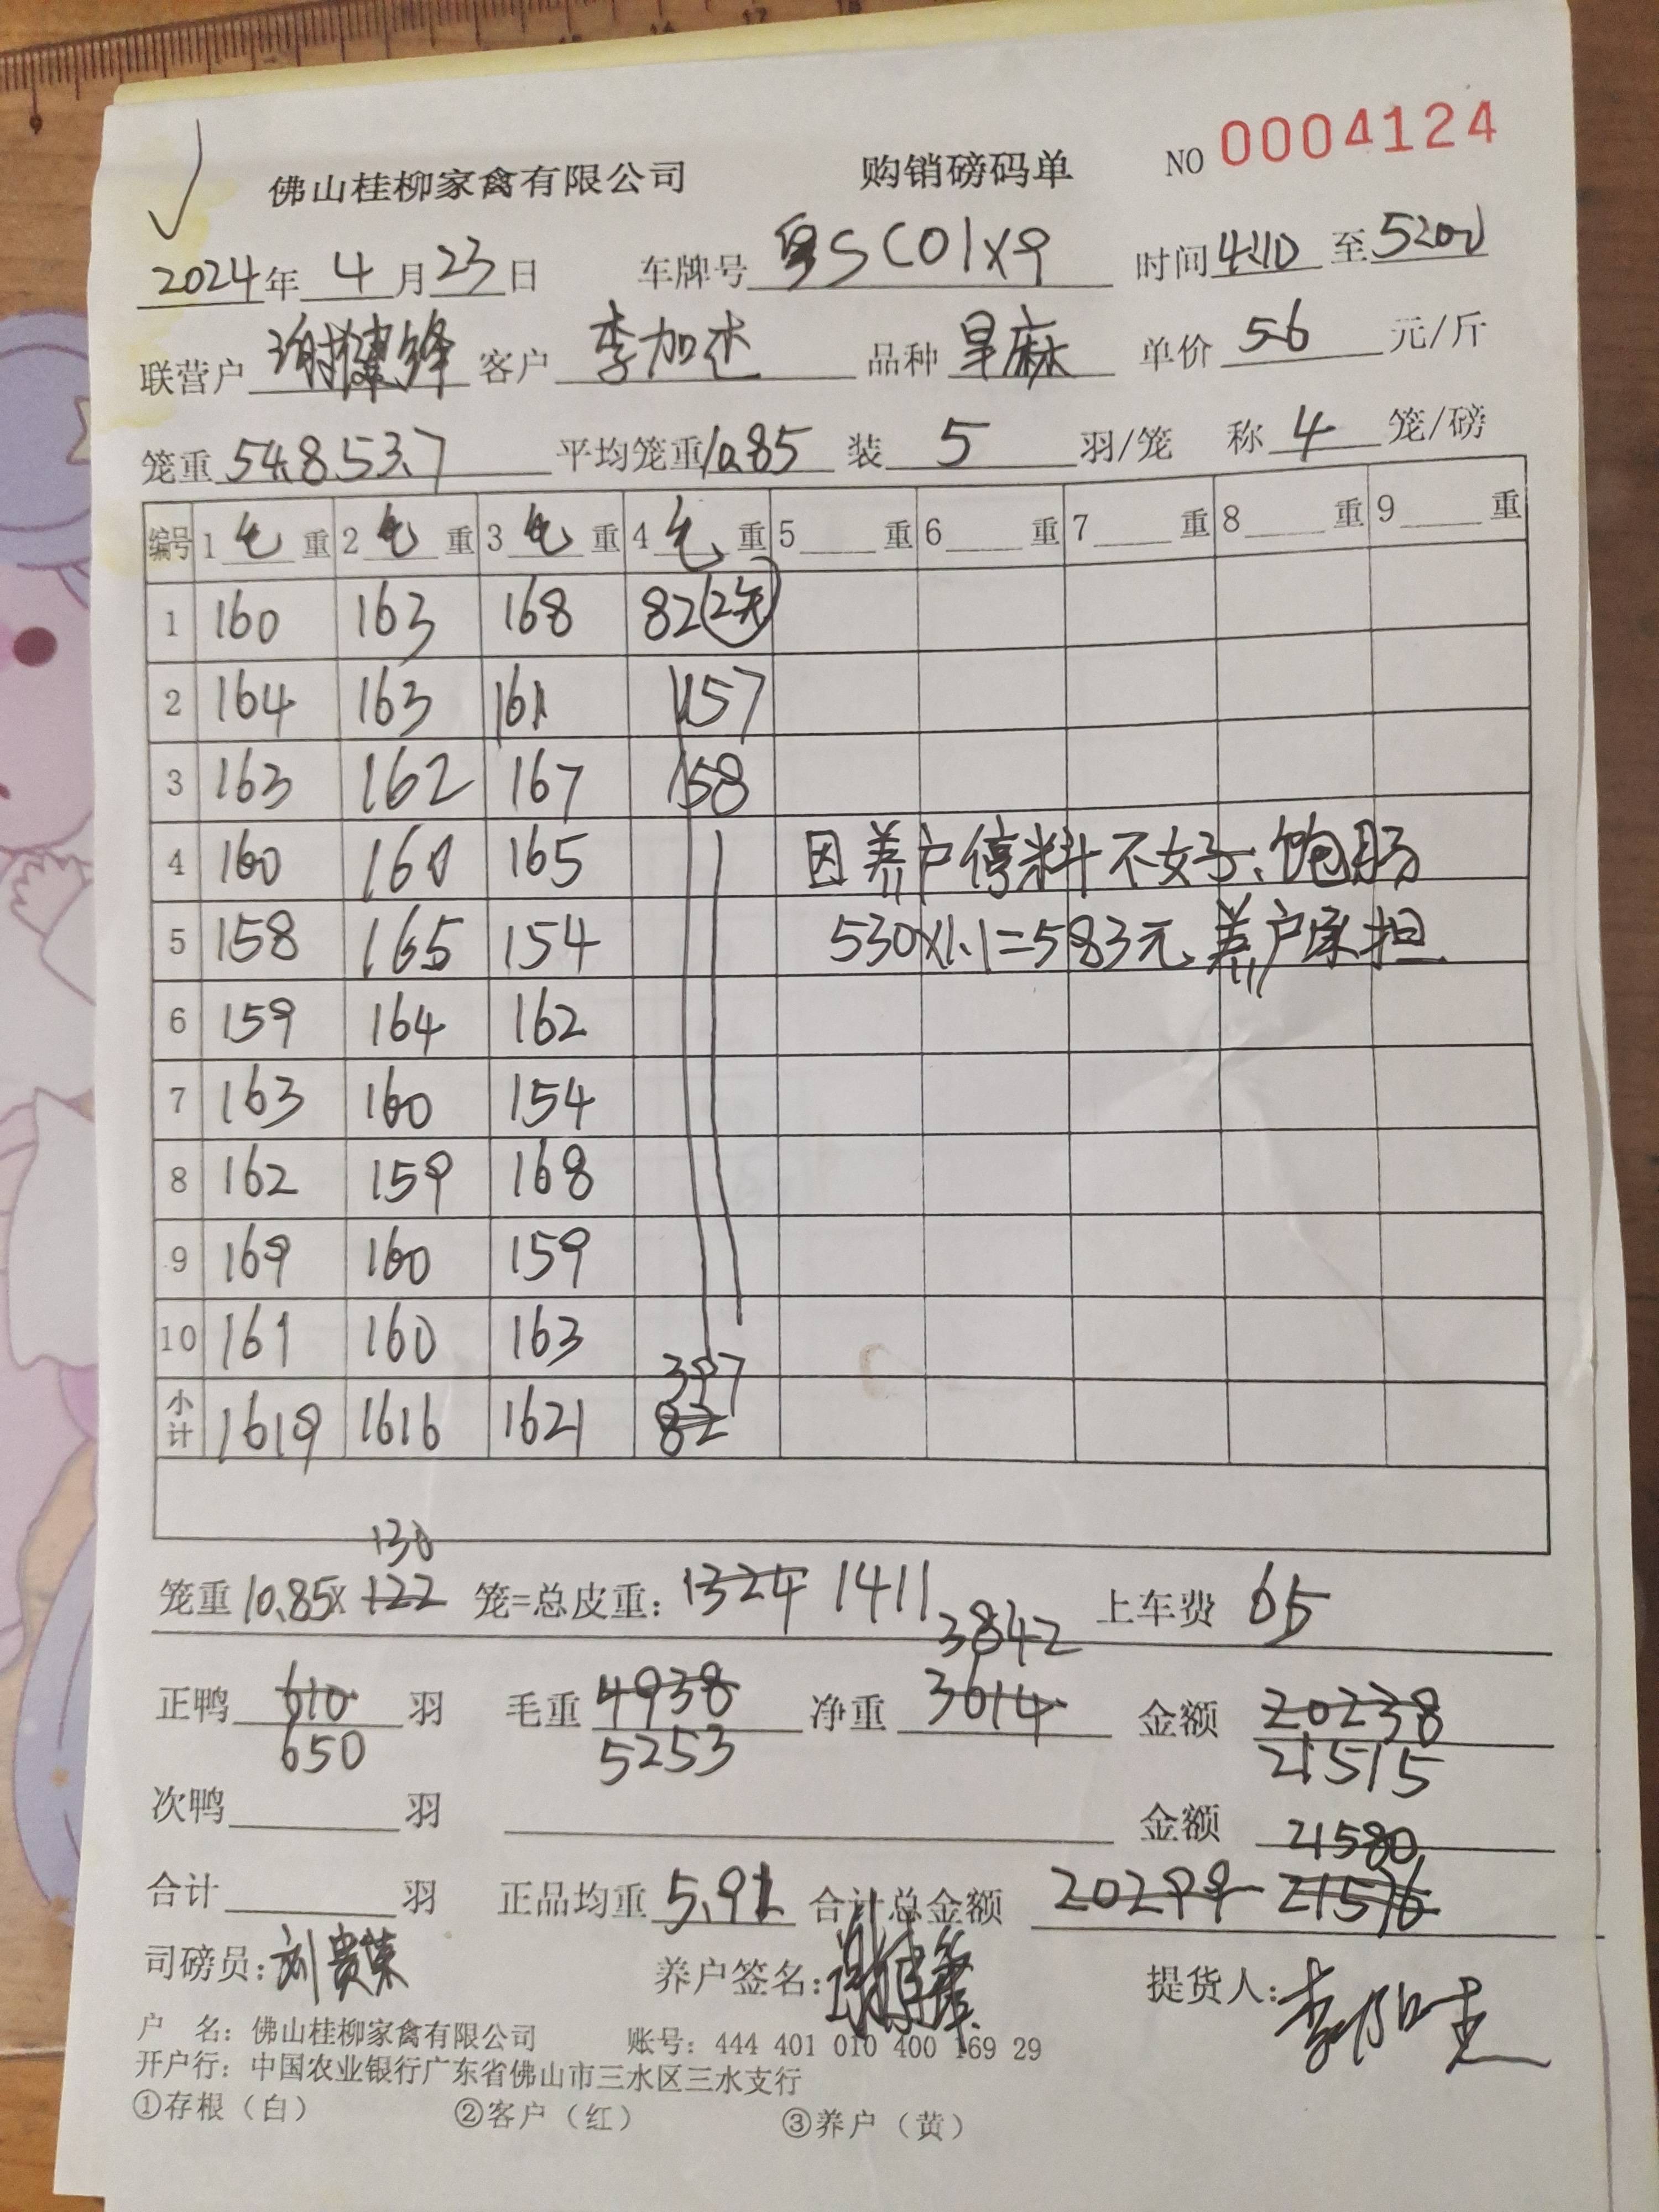 佛山桂柳家禽有限公司 购销磅码单 NO 0004124
2024年 4 月 23 日 车牌号 粤SC01X9 时间 4:10 至 5:20
联营户 谢建锋 客户 李加 品种 旱麻 单价 5.6 元/斤
笼重 54.8 53.7 平均笼重 10.85 装 5 羽/笼 称 4 笼/磅
编号 1 毛 重 2 毛 重 3 毛 重 4 毛 重 5 重 6 重 7 重 8 重 9 重
1 160 163 168 82
2 164 163 161 157
3 163 162 167 158
4 160 160 165 因养户停料不好、饱肠
5 158 165 154 530×1.1=583元、养户承担
6 159 164 162
7 163 160 154
8 162 159 168
9 169 160 159
10 161 160 163
397
小计 1619 1616 1621 82
130
笼重 10.85× 122 笼=总皮重: 1324 1411 上车费 65
3842
正鸭 610 羽 毛重 4938 净重 3614 金额 20238
650 5253 21515
次鸭 羽 金额 21580
合计 羽 正品均重 5.91 合计总金额 20299 21576
司磅员: 刘贵荣 养户签名: 谢建锋 提货人: 李
户 名: 佛山桂柳家禽有限公司 账号: 444 401 010 400 169 29
开户行: 中国农业银行广东省佛山市三水区三水支行
①存根（白） ②客户（红） ③养户（黄）
9 15 16 17 18